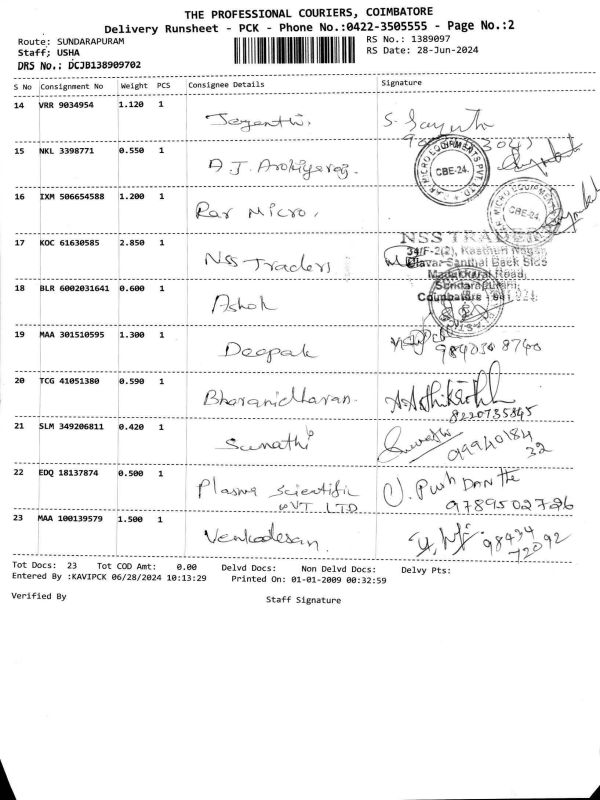 THE PROFESSIONAL COURIERS, COIMBATORE
Delivery Runsheet - PCK - Phone No.:0422-3505555 - Page No.:2
Route: SUNDARAPURAM
RS No.: 1389097
Staff; USHA
RS Date: 28-Jun-2024
DRS No.: DCJB138909702
S No Consignment No Weight PCS Consignee Details Signature
14 VRR 9034954 1.120 1 Jeyanthi. S. Sayuth
15 NKL 3398771 0.550 1 A.J. Arokiyaraj.
MICRO EQUIPMENTS PVT. LTD
CBE-24.
16 IXM 506654588 1.200 1 Rar Micro.
MICRO EQUIPMENTS
CBE-24.
17 KOC 61630585 2.850 1 NSS Traders
NSS TRADERS
34/F-2(2), Kasthuri Nagar,
Back Side
Road,
Sundarapuram,
Coimbatore - 641 024.
18 BLR 6002031641 0.600 1 Ashok
19 MAA 301510595 1.300 1 Deepak
20 TCG 41051380 0.590 1 Bharanidharan.
8220735845
21 SLM 349206811 0.420 1 Sumathi
019940184
32
22 EDQ 18137874 0.500 1 Plasma Scientific
PVT LTD
9789502726
23 MAA 100139579 1.500 1 Venkadesan. 98434
72092
Tot Docs: 23 Tot COD Amt: 0.00 Delvd Docs: Non Delvd Docs: Delvy Pts:
Entered By :KAVIPCK 06/28/2024 10:13:29 Printed On: 01-01-2009 00:32:59
Verified By Staff Signature